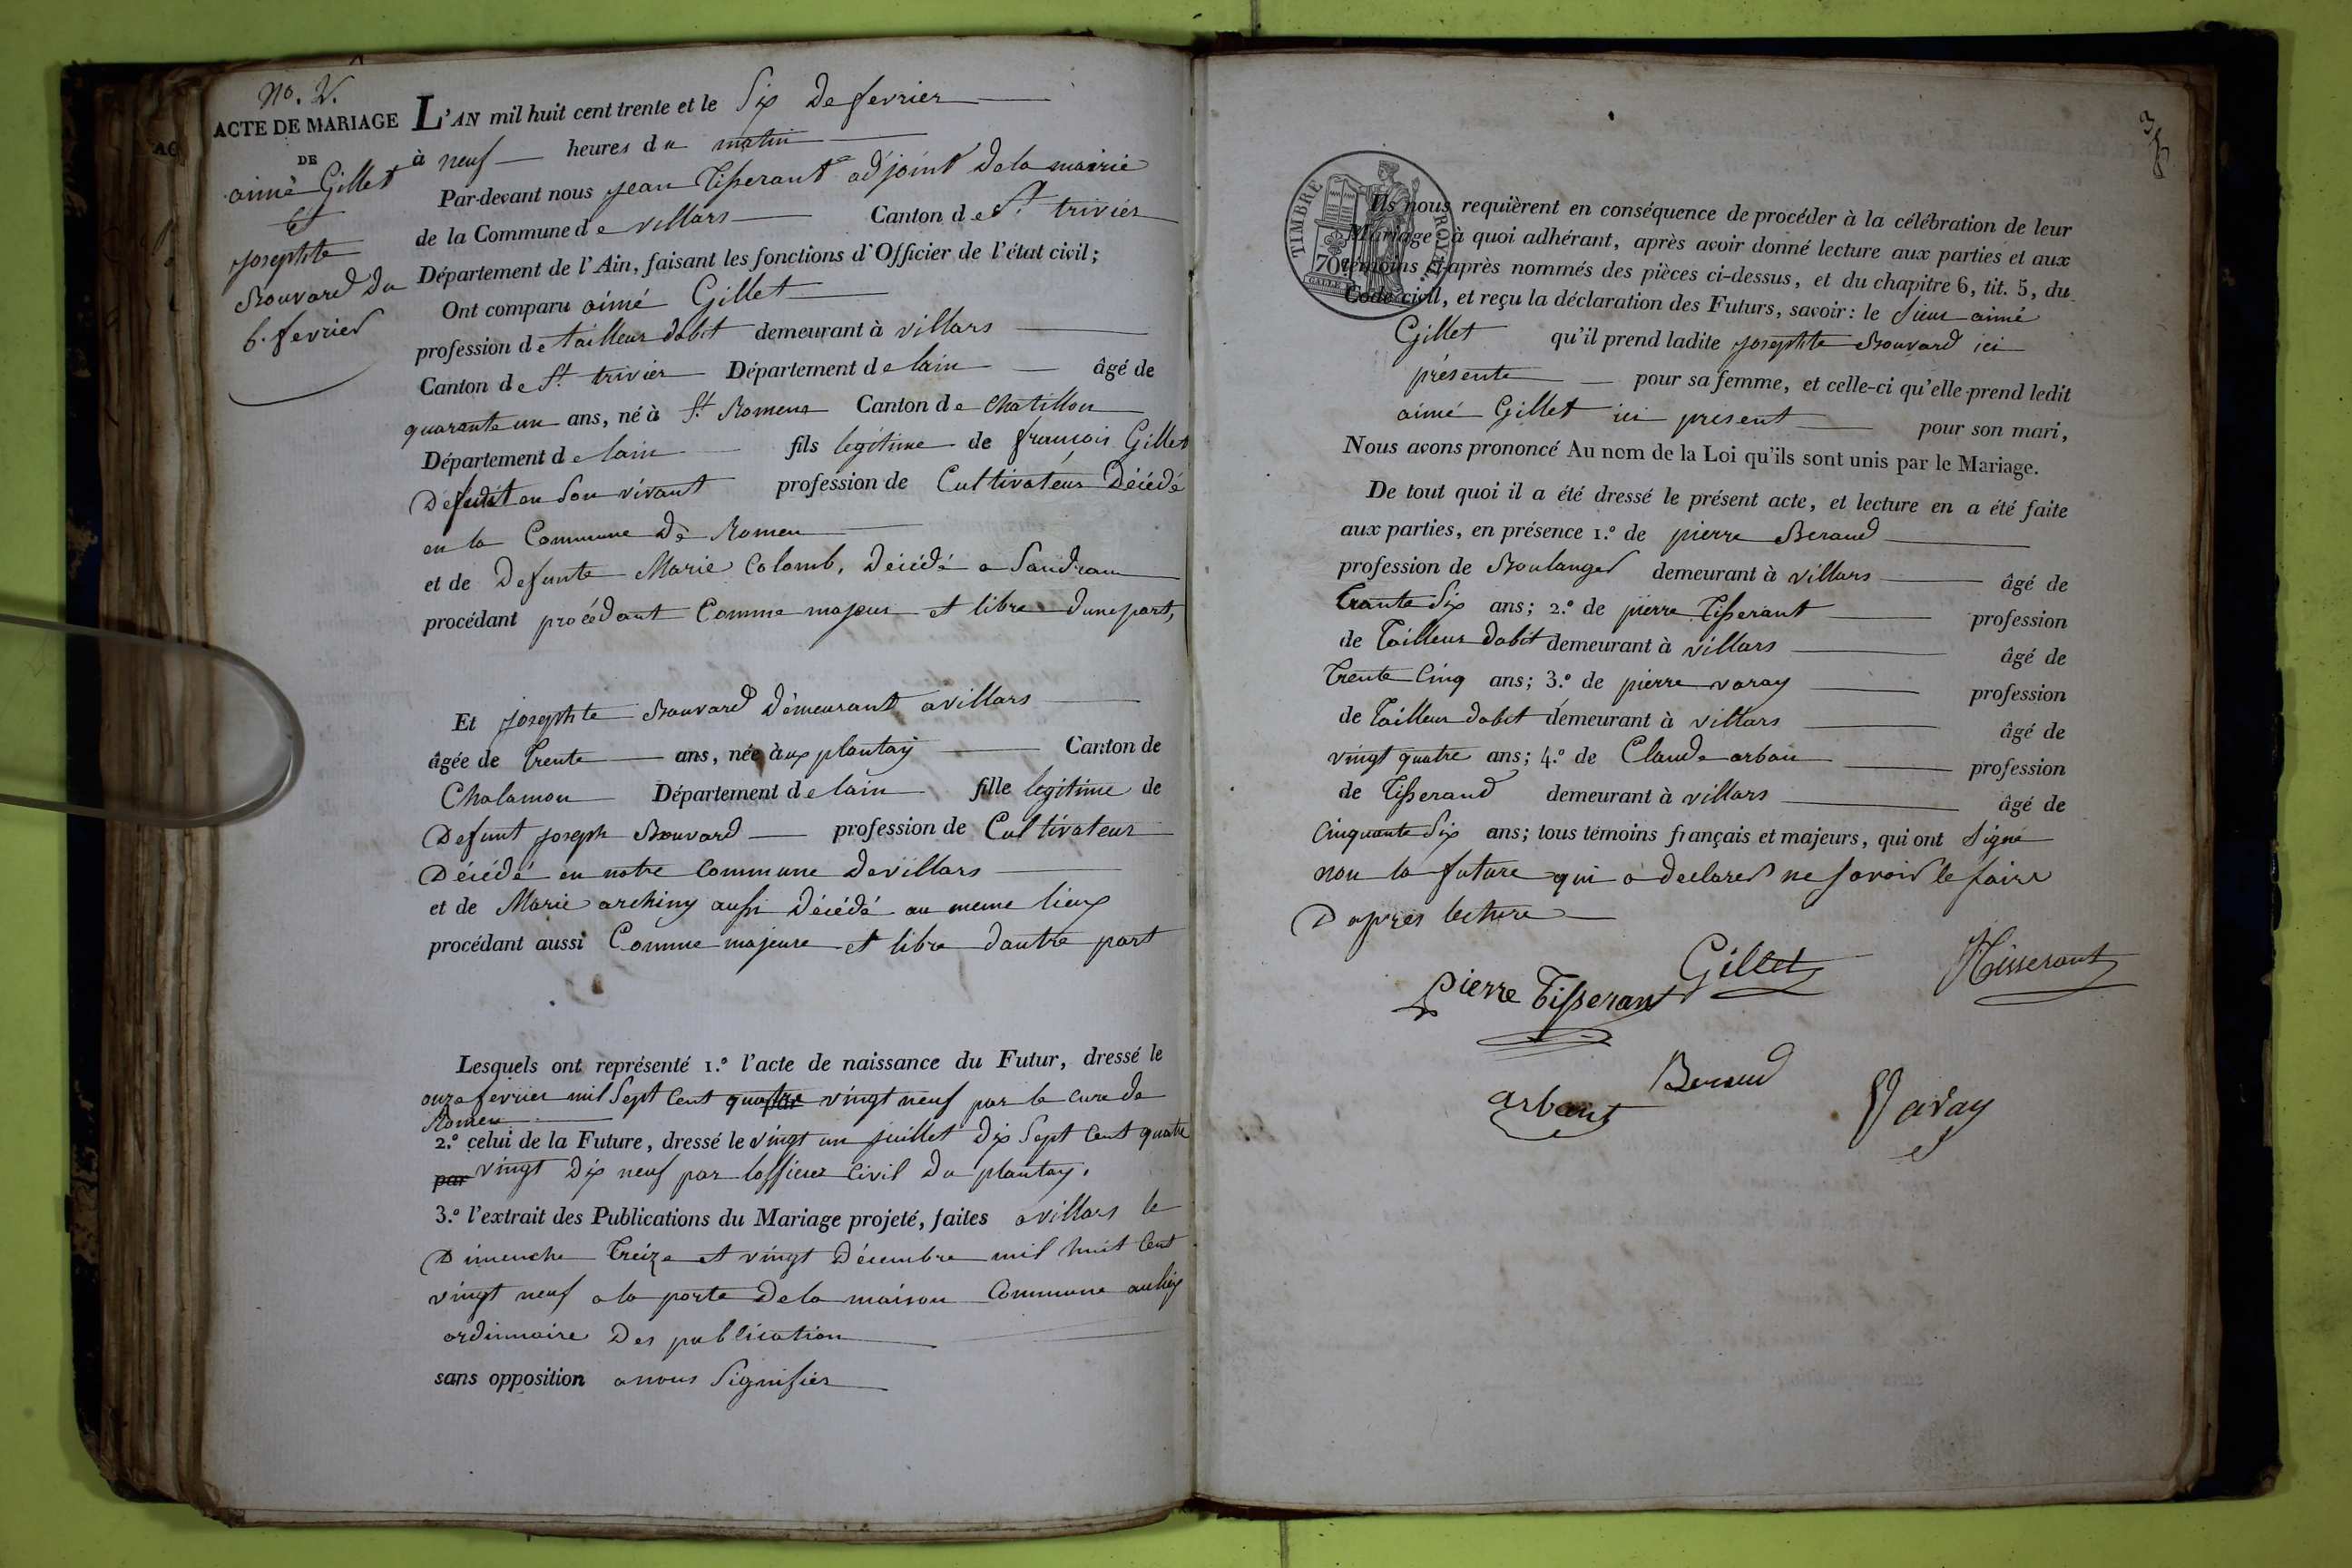 No. 2.
ACTE DE MARIAGE
DE
aimé Gillet
Et
Josephte
Bouvard du
6. fevrier
L'AN mil huit cent trente et le Six de fevrier
à neuf heures du matin
Par-devant nous jean Tisserant adjoint de la mairie
de la Commune de villars Canton de St trivier
Département de l'Ain, faisant les fonctions d'Officier de l'état civil;
Ont comparu aimé Gillet
profession de tailleur dabit demeurant à villars
Canton de St. trivier Département de lain âgé de
quarante un ans, né à St Romeur Canton de Chatillon
Département de lain fils legitime de francois Gillet
Defunt en Son vivant profession de Cultivateur Décédé
en la Commune de Romeu
et de Defunte Marie Colomb, Décédé a Sandran
procédant procédant Comme majeur et libre dune part,
Et Josephte Bouvard demeurant avillars
âgée de Trente ans, née aux plantay Canton de
Chalamon Département de lain fille legitime de
Defunt Joseph Bouvard profession de Cultivateur
Décédé en notre Commune de villars
et de Marie archiny aussi Décédé au meme lieux
procédant aussi Comme majeure et libre dautre part
Lesquels ont représenté 1.º l'acte de naissance du Futur, dressé le
onze fevrier mil Sept Cent quatre vingt neuf par le cure de
Romeu
2.º celui de la Future, dressé le vingt un juillet Dix Sept Cent quatre
par vingt Dix neuf par lofficier Civil du plantay.
3.º l'extrait des Publications du Mariage projeté, faites avillars le
Dimenche Treize et vingt Décembre mil huit Cent
vingt neuf a la porte de la maison Commune au lieu
ordinnaire Des publication
sans opposition a nous Signifier
TIMBRE ROYAL
70
Ils nous requièrent en conséquence de procéder à la célébration de leur
Mariage; à quoi adhérant, après avoir donné lecture aux parties et aux
témoins ci-après nommés des pièces ci-dessus, et du chapitre 6, tit. 5, du
Code civil, et reçu la déclaration des Futurs, savoir: le Sieur aimé
Gillet qu'il prend ladite Josephte Bouvard ici
présente pour sa femme, et celle-ci qu'elle prend ledit
aimé Gillet ici present pour son mari,
Nous avons prononcé Au nom de la Loi qu'ils sont unis par le Mariage.
De tout quoi il a été dressé le présent acte, et lecture en a été faite
aux parties, en présence 1.º de pierre Beraud
profession de Boulanger demeurant à villars âgé de
Trante Six ans; 2.º de pierre Tisserant profession
de Tailleur dabit demeurant à villars âgé de
Trente Cinq ans; 3.º de pierre varay profession
de Tailleur dabit demeurant à villars âgé de
vingt quatre ans; 4.º de Claude arban profession
de Tisserand demeurant à villars âgé de
Cinquante Six ans; tous témoins français et majeurs, qui ont Signé
non la future qui a declarer ne Savoir le faire
D apres lecture
Gillet
Tisserant
pierre Tisserant
Beraud
arbant
Varay